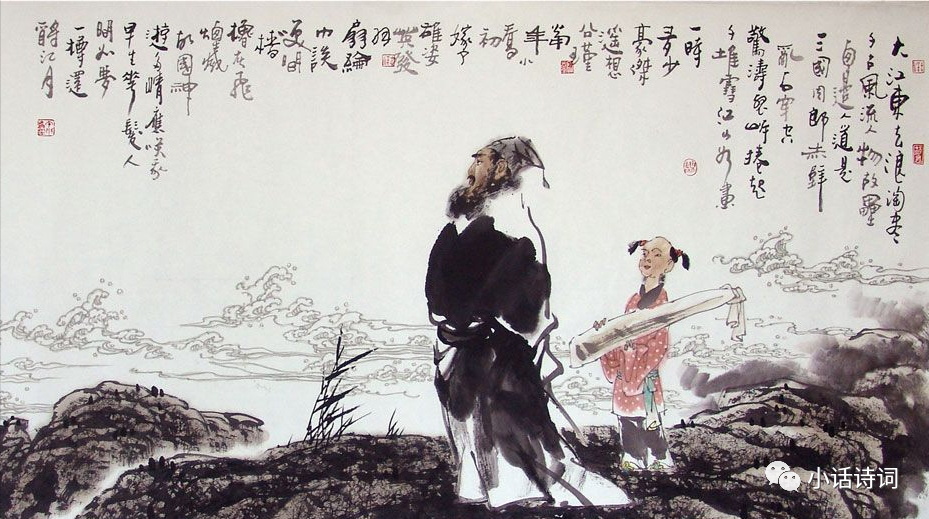 大江東去浪淘盡
千古風流人物故壘
西邊人道是
三國周郎赤壁
亂石穿空
驚濤裂岸捲起
千堆雪江山如畫
一時
多少
豪傑
遥想
公瑾
當
年小
喬
初
嫁了
雄姿
英發
羽
扇綸
巾談
笑間
檣
櫓灰飛
煙滅
故國神
遊多情應笑我
早生華髮人
間如夢
一樽還
酹江月
小话诗词